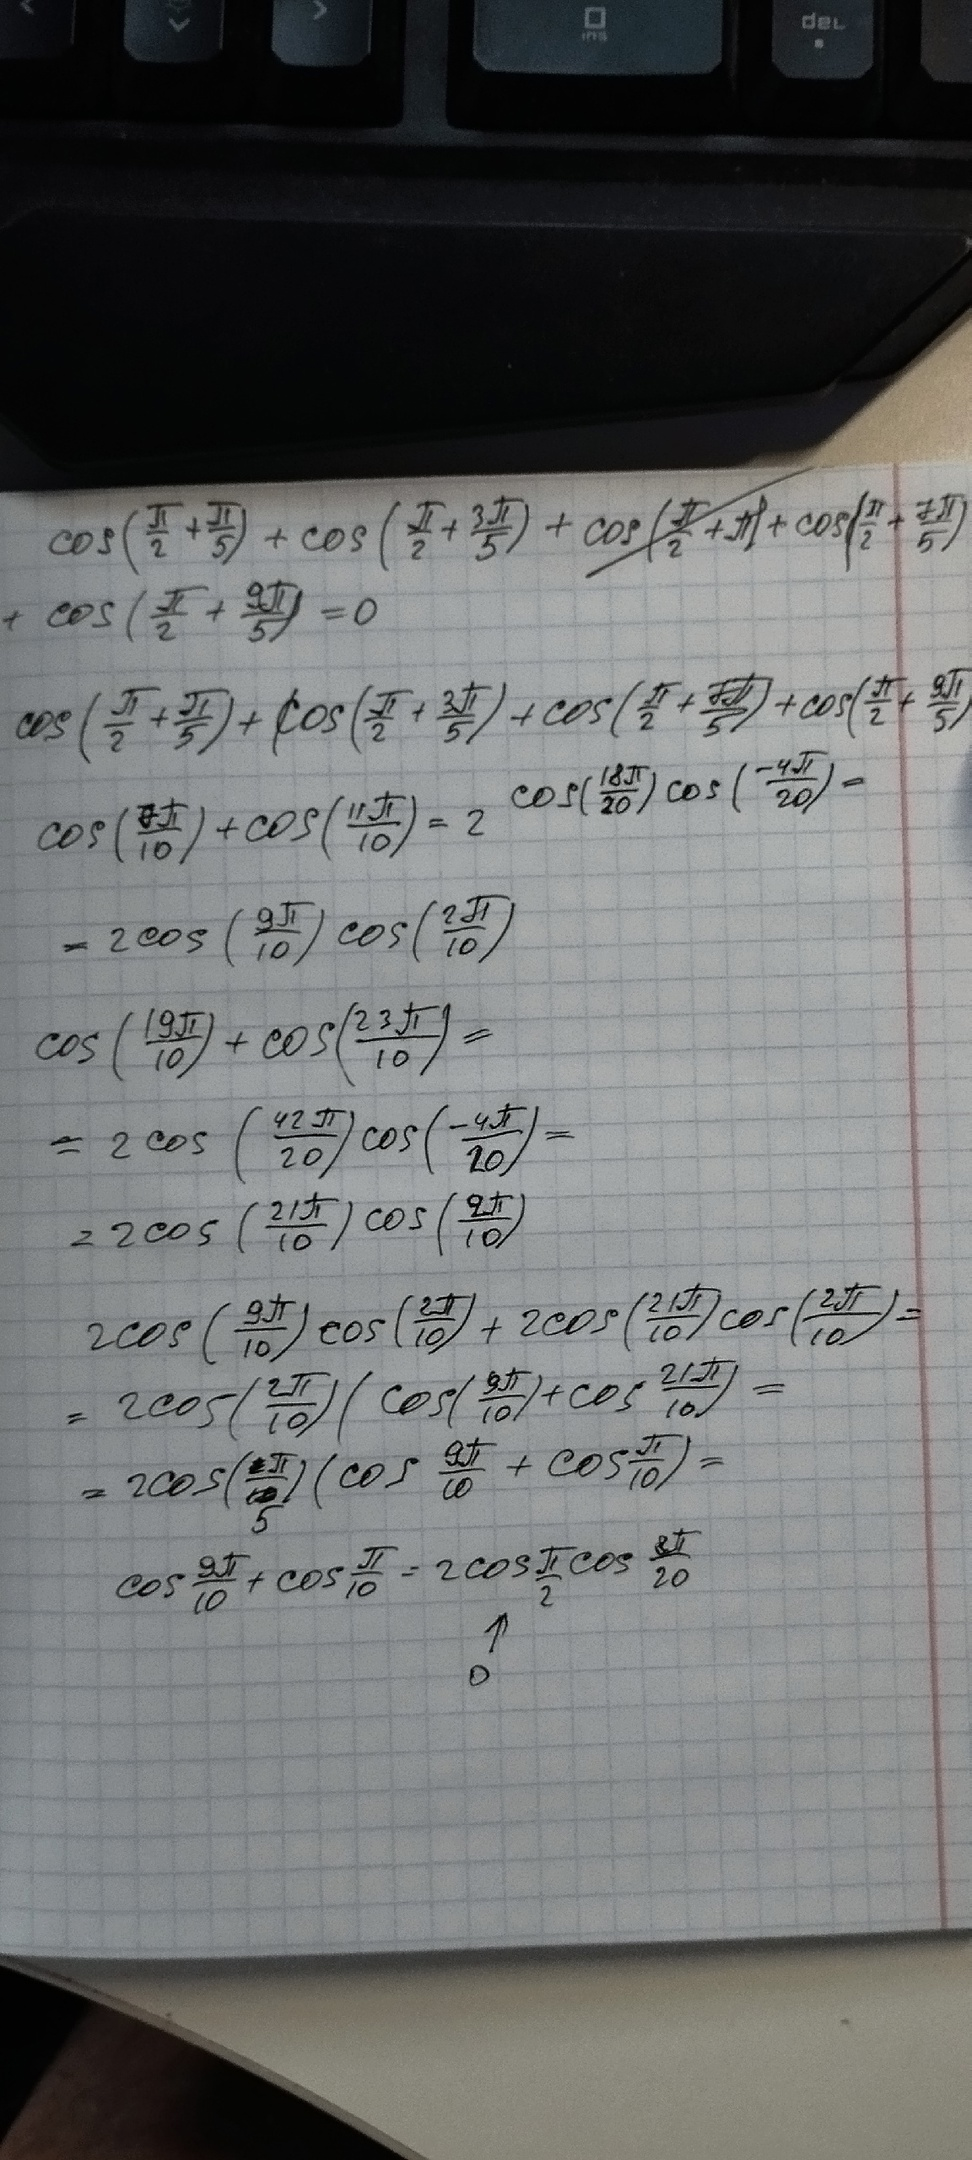 ins del
cos(π/2 + π/5) + cos(π/2 + 3π/5) + cos(π/2 + π) + cos(π/2 + 7π/5)
+ cos(π/2 + 9π/5) = 0
cos(π/2 + π/5) + cos(π/2 + 3π/5) + cos(π/2 + 7π/5) + cos(π/2 + 9π/5)
cos(7π/10) + cos(11π/10) = 2 cos(18π/20) cos(-4π/20) =
= 2cos(9π/10) cos(2π/10)
cos(19π/10) + cos(23π/10) =
= 2 cos(42π/20) cos(-4π/20) =
= 2cos(21π/10) cos(2π/10)
2cos(9π/10) cos(2π/10) + 2cos(21π/10) cos(2π/10) =
= 2cos(2π/10)(cos(9π/10) + cos 21π/10) =
= 2cos(π/5)(cos 9π/10 + cos π/10) =
cos 9π/10 + cos π/10 = 2cos π/2 cos 8π/20
↑
0